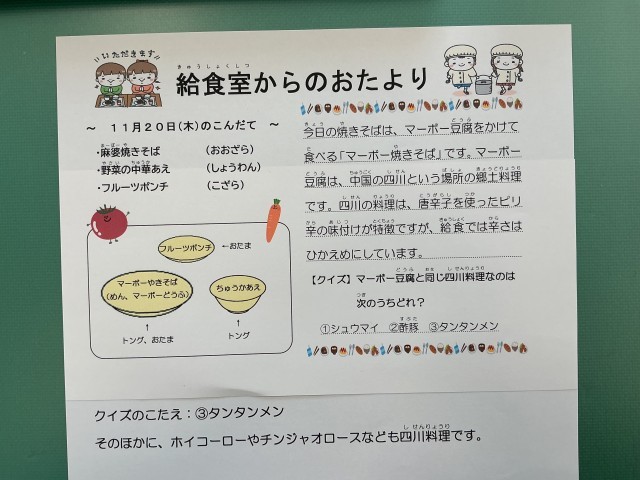 いただきます!!
給食室からのおたより
きゅうしょくしつ
～ 11月20日(木)のこんだて ～
・麻婆焼きそば (おおざら)
・野菜の中華あえ (しょうわん)
・フルーツポンチ (こざら)
フルーツポンチ ←おたま
マーボーやきそば
(めん、マーボーどうふ)
ちゅうかあえ
↑
トング、おたま
↑
トング
今日の焼きそばは、マーボー豆腐をかけて
食べる「マーボー焼きそば」です。マーボー
豆腐は、中国の四川という場所の郷土料理
です。四川の料理は、唐辛子を使ったピリ
辛の味付けが特徴ですが、給食では辛さは
ひかえめにしています。
【クイズ】マーボー豆腐と同じ四川料理なのは
次のうちどれ？
①シュウマイ ②酢豚 ③タンタンメン
クイズのこたえ：③タンタンメン
そのほかに、ホイコーローやチンジャオロースなども四川料理です。